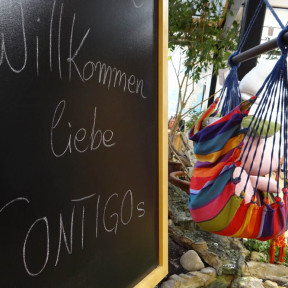 Willkommen
liebe
CONTIGOs